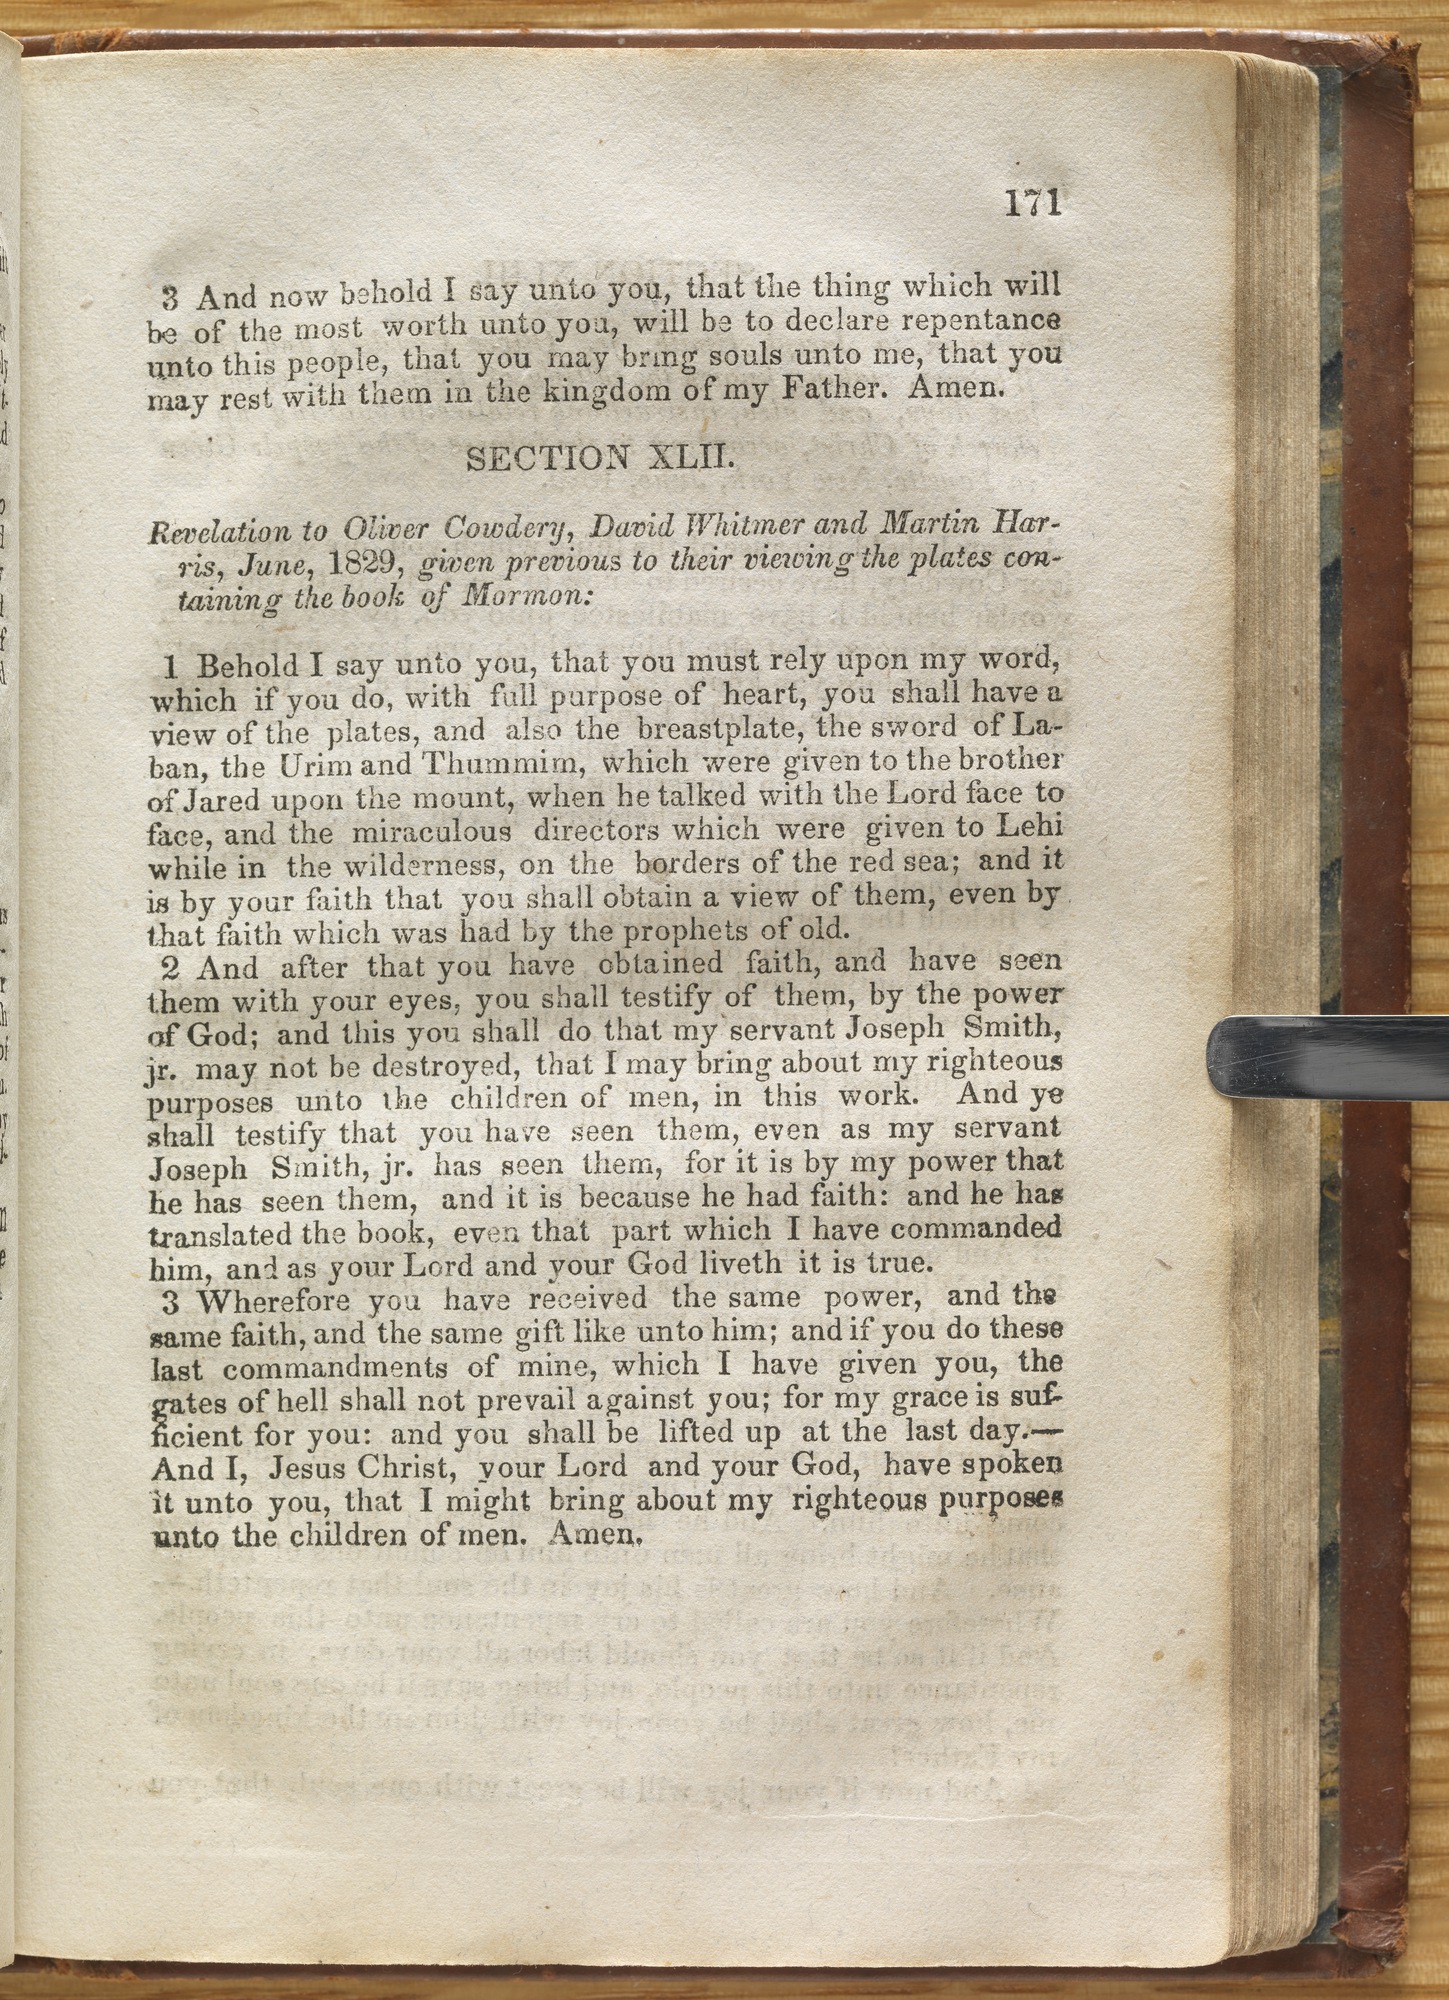 171
3 And now behold I say unto you, that the thing which will
be of the most worth unto you, will be to declare repentance
unto this people, that you may bring souls unto me, that you
may rest with them in the kingdom of my Father. Amen.
SECTION XLII.
Revelation to Oliver Cowdery, David Whitmer and Martin Har-
ris, June, 1829, given previous to their viewing the plates con-
taining the book of Mormon:
1 Behold I say unto you, that you must rely upon my word,
which if you do, with full purpose of heart, you shall have a
view of the plates, and also the breastplate, the sword of La-
ban, the Urim and Thummim, which were given to the brother
of Jared upon the mount, when he talked with the Lord face to
face, and the miraculous directors which were given to Lehi
while in the wilderness, on the borders of the red sea; and it
is by your faith that you shall obtain a view of them, even by
that faith which was had by the prophets of old.
2 And after that you have obtained faith, and have seen
them with your eyes, you shall testify of them, by the power
of God; and this you shall do that my servant Joseph Smith,
jr. may not be destroyed, that I may bring about my righteous
purposes unto the children of men, in this work. And ye
shall testify that you have seen them, even as my servant
Joseph Smith, jr. has seen them, for it is by my power that
he has seen them, and it is because he had faith: and he has
translated the book, even that part which I have commanded
him, and as your Lord and your God liveth it is true.
3 Wherefore you have received the same power, and the
same faith, and the same gift like unto him; and if you do these
last commandments of mine, which I have given you, the
gates of hell shall not prevail against you; for my grace is suf-
ficient for you: and you shall be lifted up at the last day.—
And I, Jesus Christ, your Lord and your God, have spoken
it unto you, that I might bring about my righteous purposes
unto the children of men. Amen.